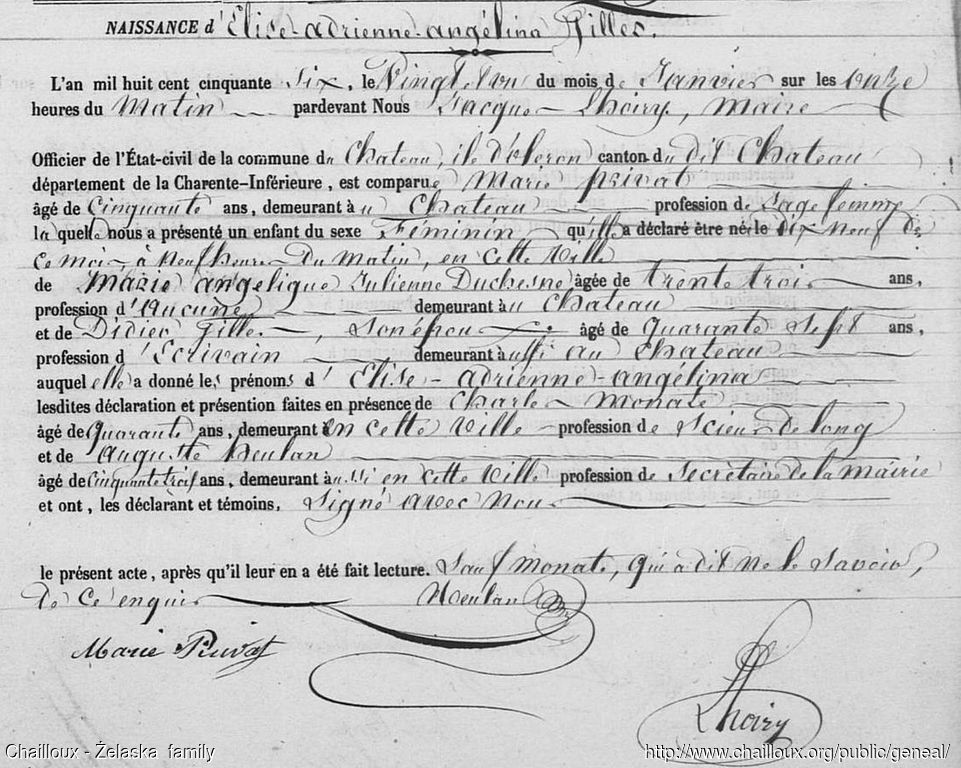 NAISSANCE d'Élise-adrienne-angélina Gilles.
L'an mil huit cent cinquante Six, le Vingt un du mois de Janvier sur les onze
heures du Matin pardevant Nous Jacques Lhoiry, Maire
Officier de l'État-civil de la commune du Chateau, ile d'oleron canton du dit Chateau
département de la Charente-Inférieure, est comparue Marie Privat
âgé de Cinquante ans, demeurant au Chateau profession de Sage femme
la quelle nous a présenté un enfant du sexe Féminin qu'ill a déclaré être né le dix neuf de
ce mois, à neuf heures du matin, en cette Ville
de Marie angelique Julienne Duchesne âgée de trente trois ans,
profession d'Aucune demeurant au Chateau
et de Didier Gilles, son époux âgé de quarante Sept ans,
profession d'Ecrivain demeurant aussi au Chateau
auquel elle a donné les prénoms d'Elise-adrienne-angélina
lesdites déclaration et présention faites en présence de Charles Monate
âgé de quarante ans, demeurant en cette Ville profession de Scieur de long
et de auguste heulan
âgé de Cinquante trois ans, demeurant aussi en cette Ville profession de Secretaire de la mairie
et ont, les déclarant et témoins, Signé avec Nous
le présent acte, après qu'il leur en a été fait lecture. Sauf Monate, qui a dit ne le Savoir,
de ce enquis heulan
Marie Privat
Lhoiry
Chailloux - Żelaska family http://www.chailloux.org/public/geneal/